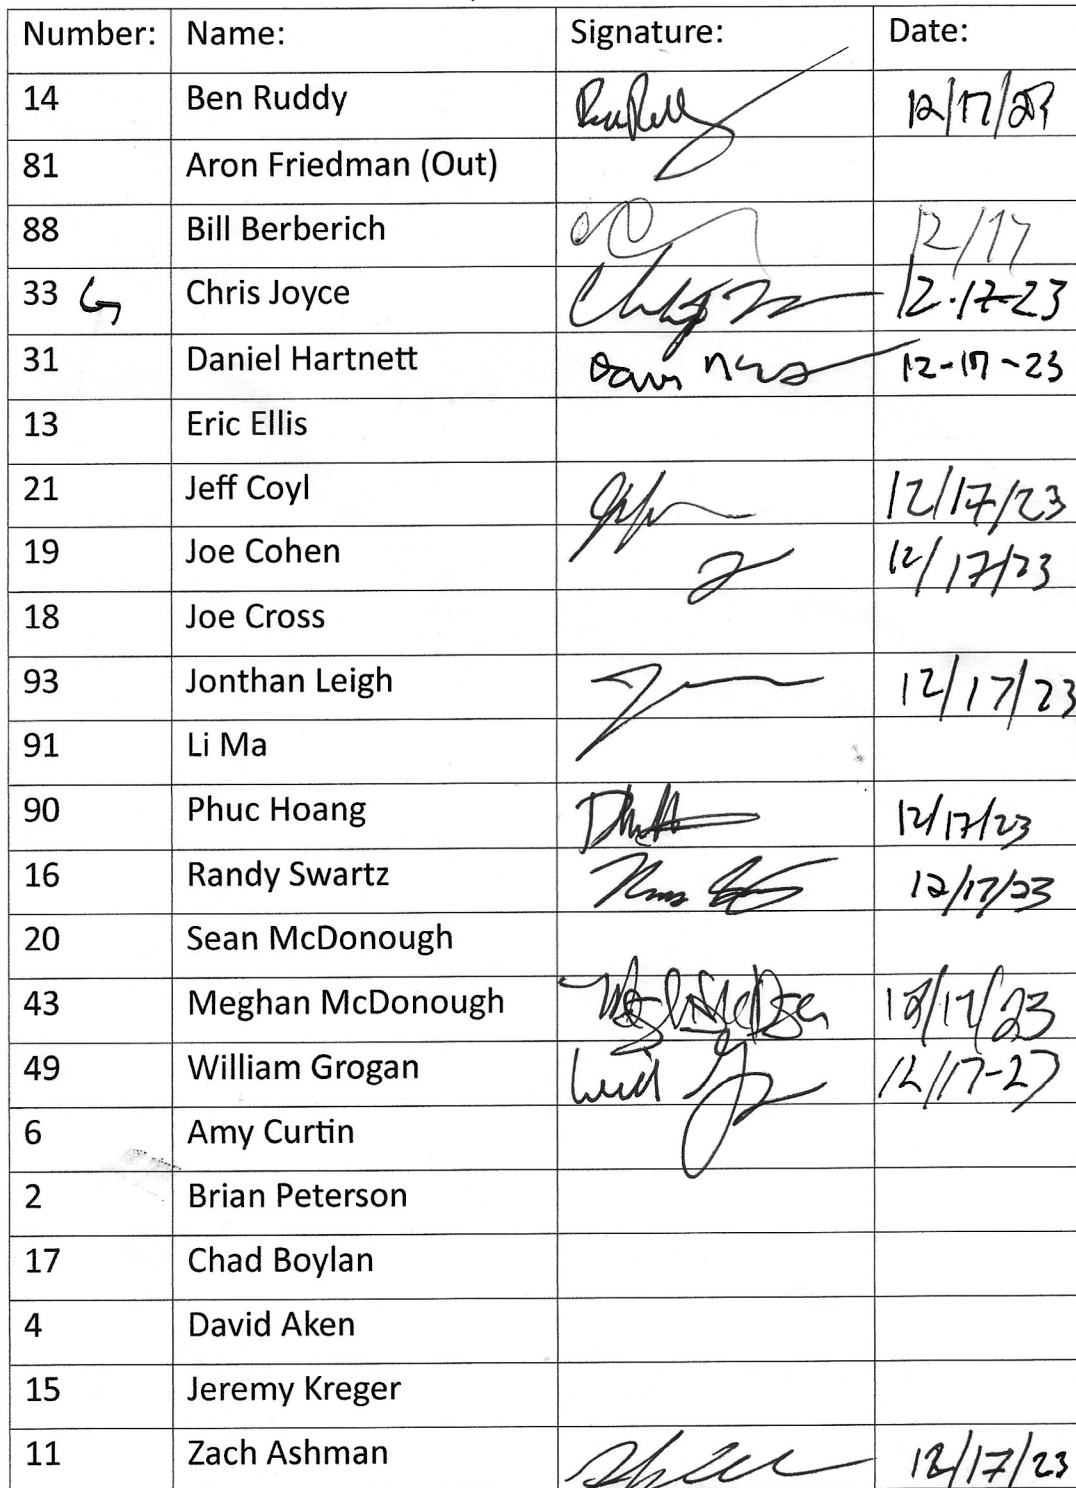 Number: Name: Signature: Date:
14 Ben Ruddy 12/17/23
81 Aron Friedman (Out)
88 Bill Berberich 12/17
33 G Chris Joyce 12-17-23
31 Daniel Hartnett 12-17-23
13 Eric Ellis
21 Jeff Coyl 12/17/23
19 Joe Cohen 12/17/23
18 Joe Cross
93 Jonthan Leigh 12/17/23
91 Li Ma
90 Phuc Hoang 12/17/23
16 Randy Swartz 12/17/23
20 Sean McDonough
43 Meghan McDonough 12/17/23
49 William Grogan 12/17-23
6 Amy Curtin
2 Brian Peterson
17 Chad Boylan
4 David Aken
15 Jeremy Kreger
11 Zach Ashman 12/17/23